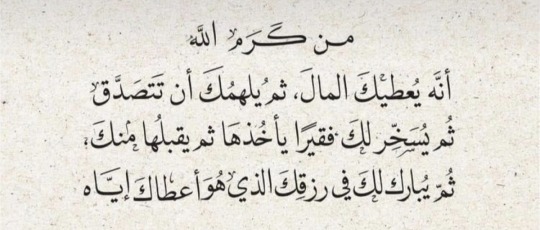 من كَرَم الله
أنَّه يُعطيْكَ المالَ، ثم يُلهمُكَ أن تَتَصَدَّق
ثُم يُسَخِّر لكَ فقيرًا يأخُذهَا ثم يقبلُها منكَ،
ثُمّ يُبارك لكَ في رزقِكَ الذي هُوَ أعطاكَ إيَّاه